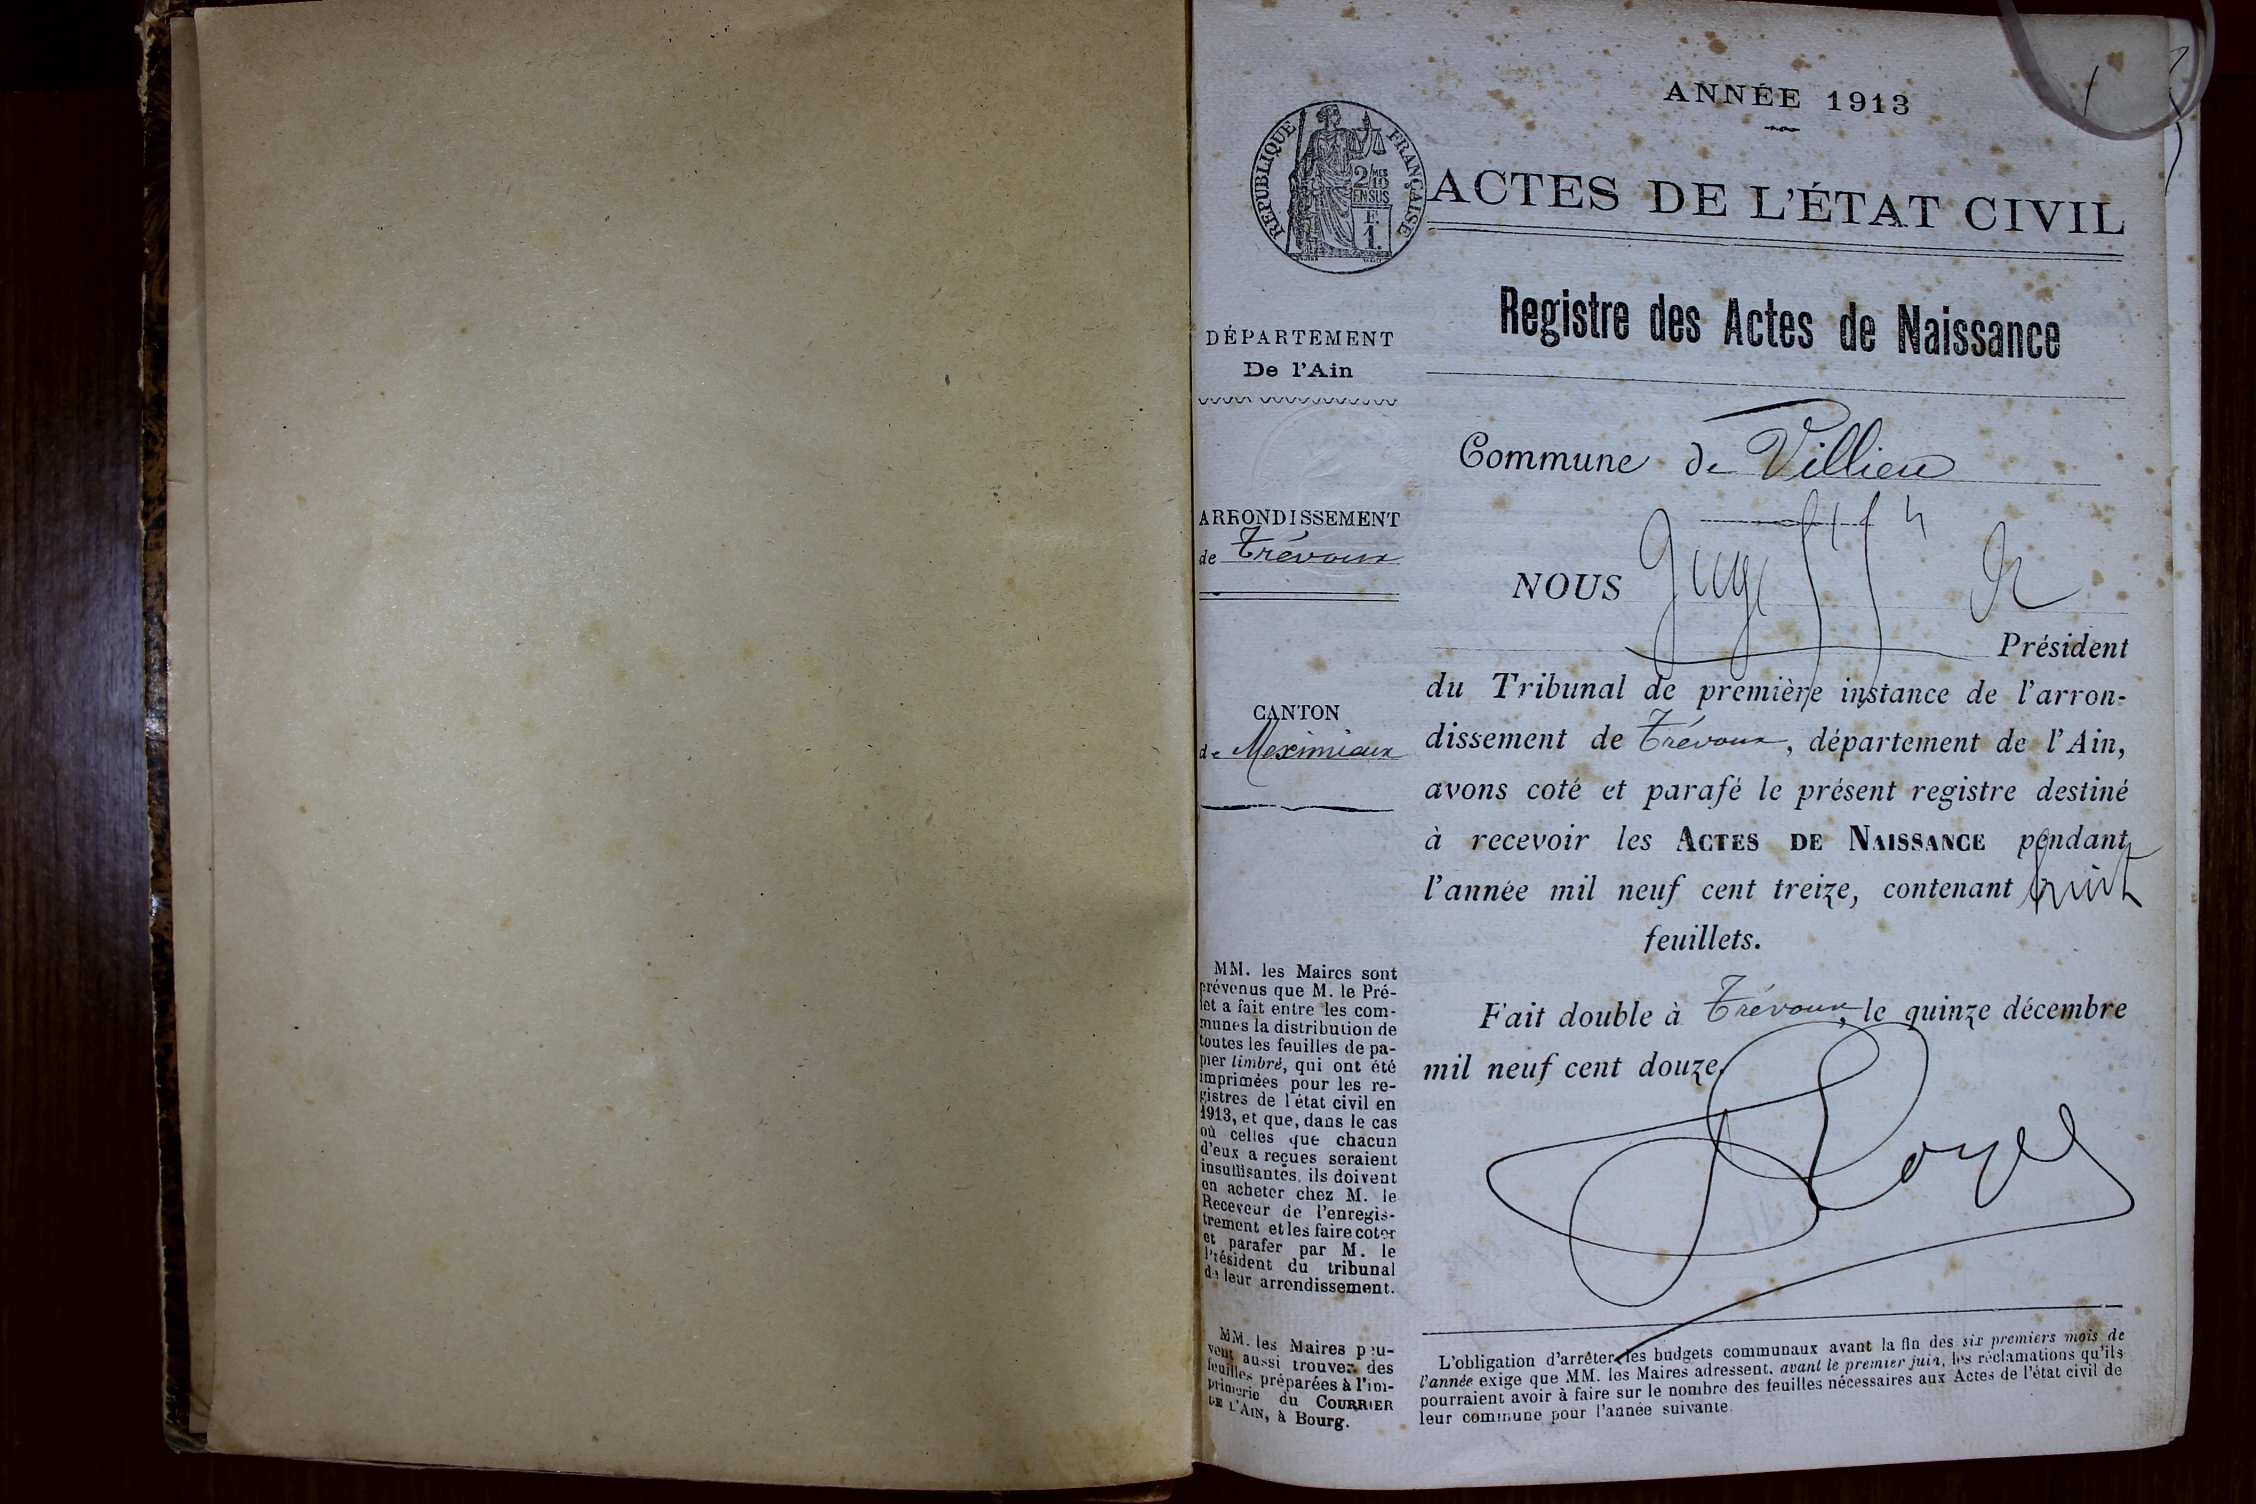 ANNÉE 1913
RÉPUBLIQUE FRANÇAISE
2/10 MES
EN SUS
F.
1.
ACTES DE L'ÉTAT CIVIL
Registre des Actes de Naissance
DÉPARTEMENT
De l'Ain
ARRONDISSEMENT
de Trévoux
CANTON
de Meximieux
MM. les Maires sont
prévenus que M. le Pré-
fet a fait entre les com-
munes la distribution de
toutes les feuilles de pa-
pier timbré, qui ont été
imprimées pour les re-
gistres de l'état civil en
1913, et que, dans le cas
où celles que chacun
d'eux a reçues seraient
insuffisantes, ils doivent
en acheter chez M. le
Receveur de l'enregis-
trement et les faire coter
et parafer par M. le
Président du tribunal
de leur arrondissement.
MM. les Maires peu-
vent aussi trouver des
feuilles préparées à l'im-
primerie du COURRIER
DE L'AIN, à Bourg.
Commune de Villieu
NOUS
Président
du Tribunal de première instance de l'arron-
dissement de Trévoux, département de l'Ain,
avons coté et parafé le présent registre destiné
à recevoir les ACTES DE NAISSANCE pendant
l'année mil neuf cent treize, contenant huit
feuillets.
Fait double à Trévoux, le quinze décembre
mil neuf cent douze.
L'obligation d'arrêter les budgets communaux avant la fin des six premiers mois de
l'année exige que MM. les Maires adressent, avant le premier juin, les réclamations qu'ils
pourraient avoir à faire sur le nombre des feuilles nécessaires aux Actes de l'état civil de
leur commune pour l'année suivante.